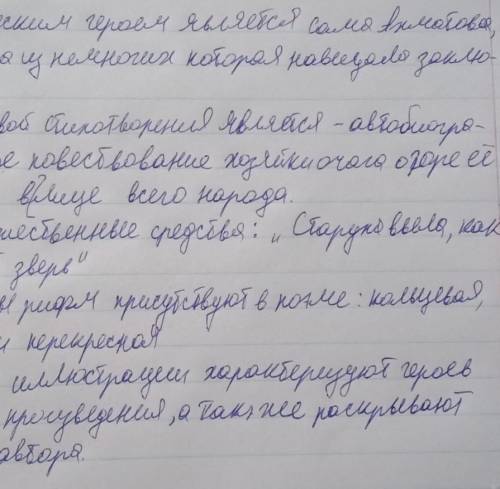 ским героем является сама Ахматова,
а из немногих которая навещала заклю-
стихотворения является - автобиогра-
ое повествование хозяйки очага о горе её
в лице всего народа.
шественные средства: "Старуха выла, как
зверь"
ы рифм присутствуют в поэме: кольцевая,
и перекрестная
иллюстрации характеризуют героев
произведения, а также раскрывают
автора.